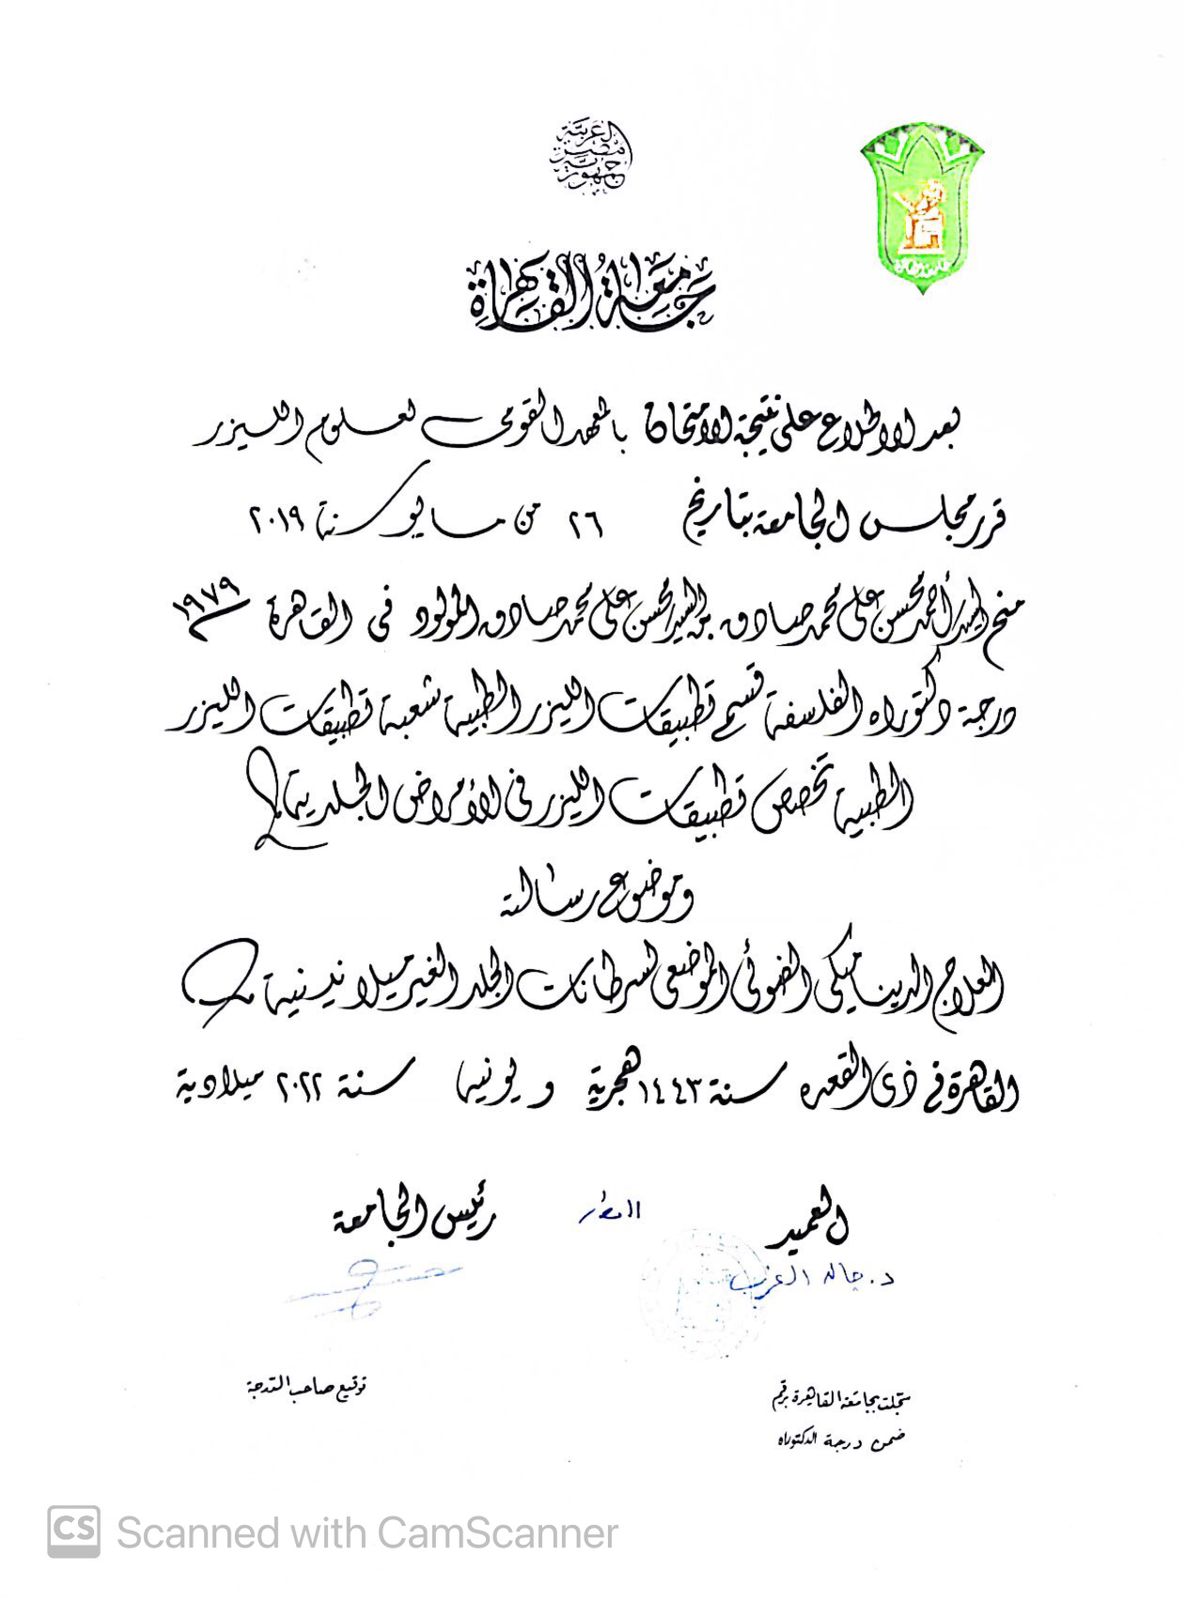 جمهورية مصر العربية
جامعة القاهرة
جامعة القاهرة
بعد الاطلاع على نتيجة الامتحان بالمعهد القومى لعلوم الليزر
قرر مجلس الجامعة بتاريخ ٢٦ من مايو سنة ٢٠١٩
منح السيد أحمد محسن على محمد صادق بن السيد محسن على محمد صادق المولود فى القاهرة ١٩٧٩
درجة دكتوراه الفلسفة قسم تطبيقات الليزر الطبية شعبة تطبيقات الليزر
الطبية تخصص تطبيقات الليزر فى الأمراض الجلدية
وموضوع رسالته
العلاج الديناميكى الضوئى الموضعى لسرطانات الجلد الغير ميلانينية
القاهرة فى ذى القعده سنة ١٤٤٣ هجرية و يونيه سنة ٢٠٢٢ ميلادية
العميد
رئيس الجامعة
د. خالد العزب
سجلت بجامعة القاهرة برقم
توقيع صاحب الدرجة
ضمن درجة الدكتوراه
CS Scanned with CamScanner